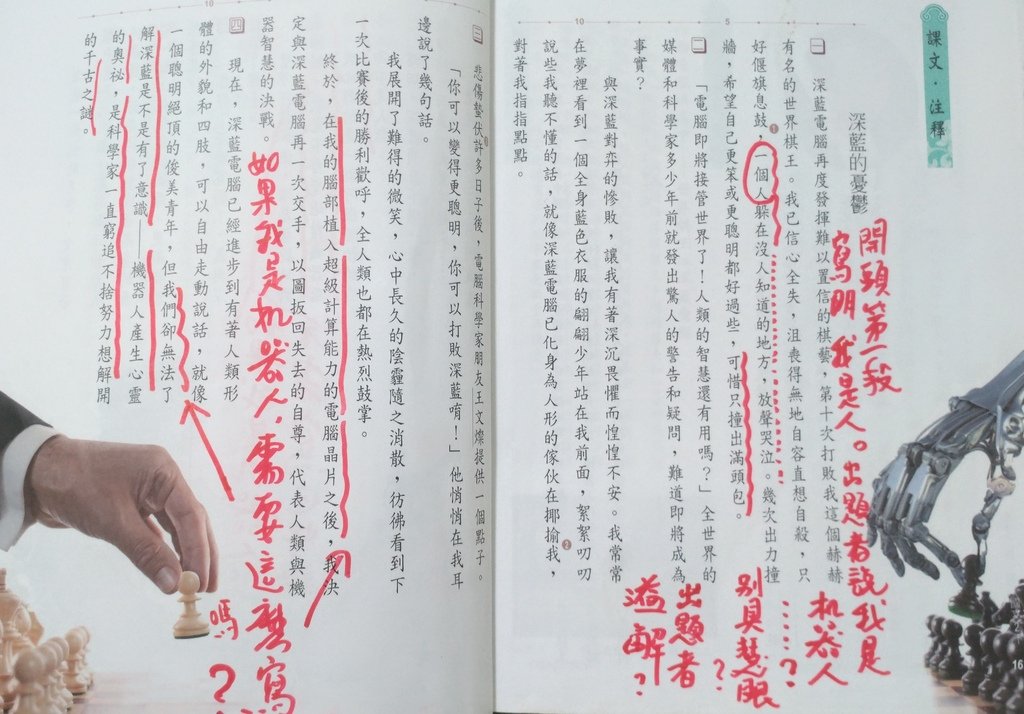 課文·注釋
深藍的憂鬱
一
深藍電腦再度發揮難以置信的棋藝，第十次打敗我這個赫赫
有名的世界棋王。我已信心全失，沮喪得無地自容直想自殺，只
好偃旗息鼓，一個人躲在沒人知道的地方，放聲哭泣。幾次出力撞
牆，希望自己更笨或更聰明都好過些，可惜只撞出滿頭包。
二
「電腦即將接管世界了！人類的智慧還有用嗎？」全世界的
媒體和科學家多少年前就發出驚人的警告和疑問，難道即將成為
事實？
與深藍對弈的慘敗，讓我有著深沉畏懼而惶惶不安。我常常
在夢裡看到一個全身藍色衣服的翩翩少年站在我前面，絮絮叨叨
說些我聽不懂的話，就像深藍電腦已化身為人形的傢伙在揶揄我，
對著我指指點點。
5
10
1
2
16
開頭第一段
寫明我是人。出題者說我是
机器人
……？
別具慧眼
？
出題者
溢解
？
三
悲傷蟄伏許多日子後，電腦科學家朋友王文燦提供一個點子。
「你可以變得更聰明，你可以打敗深藍唷！」他悄悄在我耳
邊說了幾句話。
我展開了難得的微笑，心中長久的陰霾隨之消散，彷彿看到下
一次比賽後的勝利歡呼，全人類也都在熱烈鼓掌。
終於，在我的腦部植入超級計算能力的電腦晶片之後，我決
定與深藍電腦再一次交手，以圖扳回失去的自尊，代表人類與機
器智慧的決戰。
四
現在，深藍電腦已經進步到有著人類形
體的外貌和四肢，可以自由走動說話，就像
一個聰明絕頂的俊美青年，但我們卻無法了
解深藍是不是有了意識——機器人產生心靈
的奧祕，是科學家一直窮追不捨努力想解開
的千古之謎。
10
如果我是机器人，需要這麼寫
嗎？